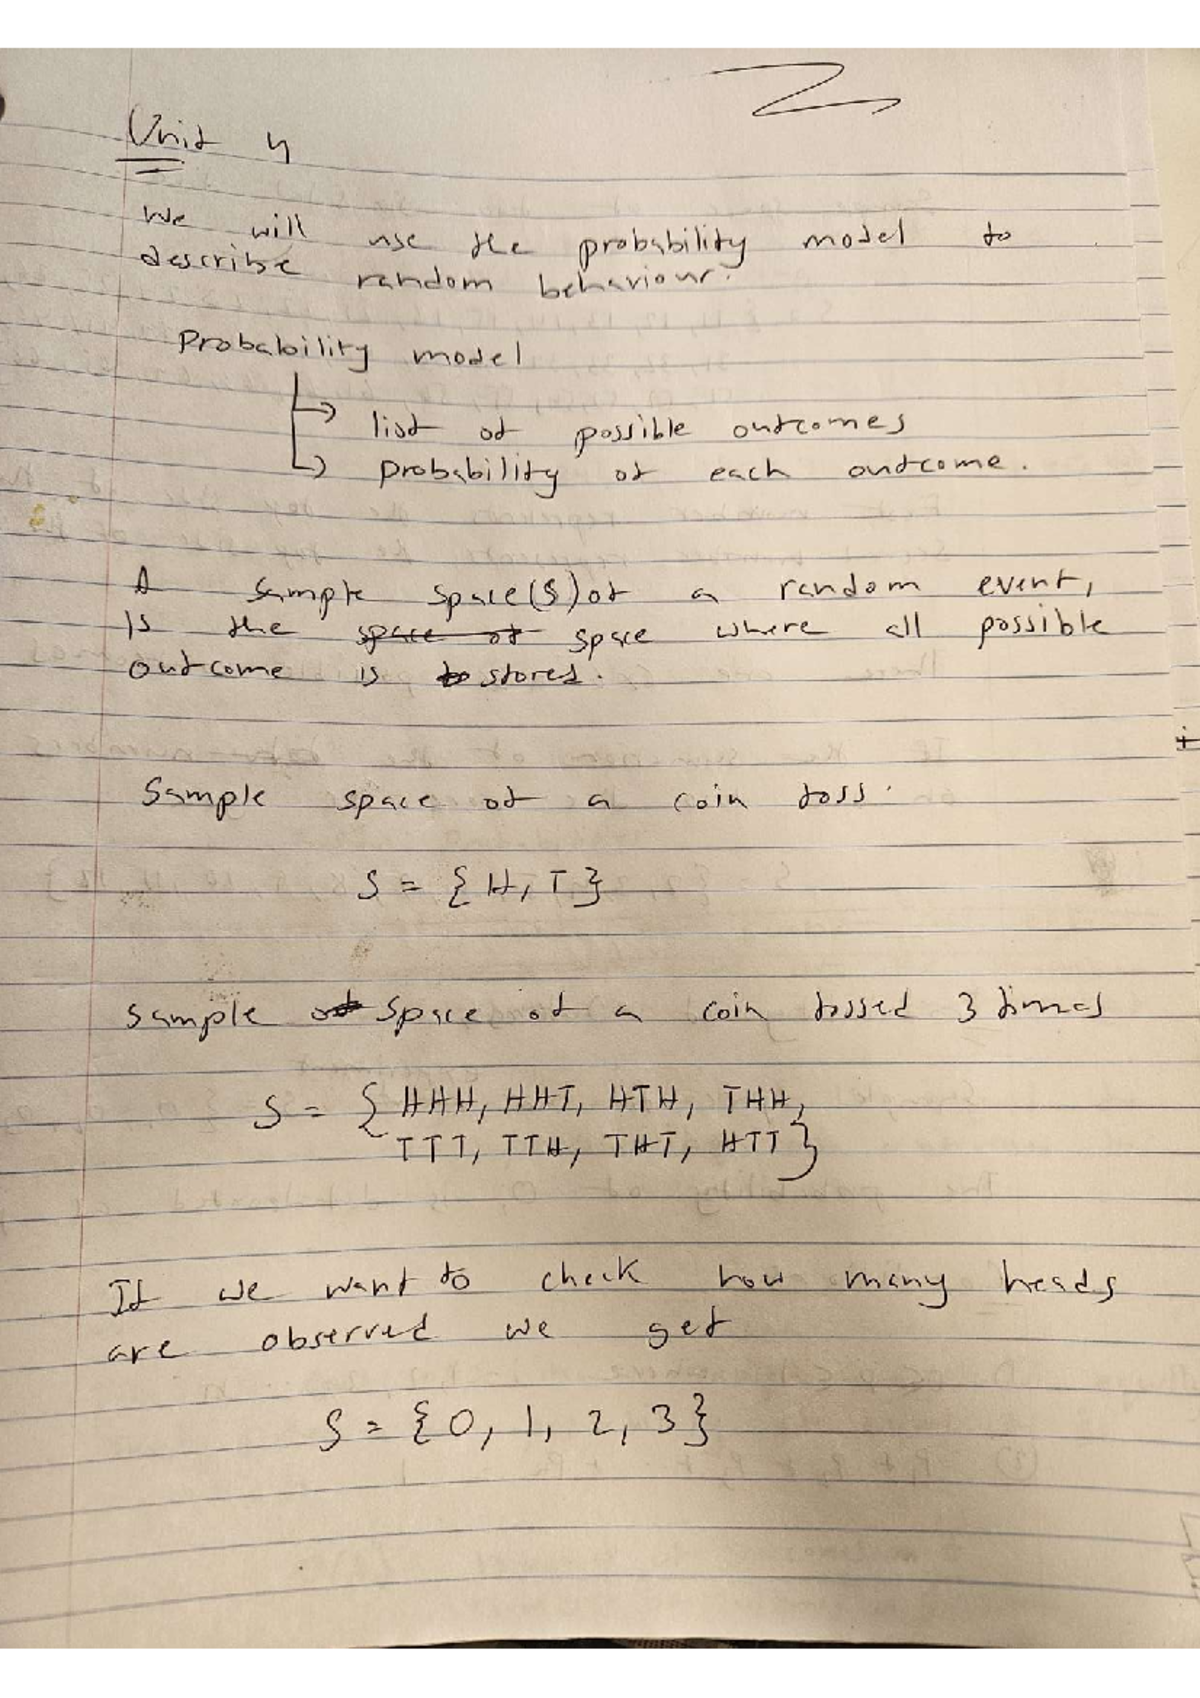 Unit 4
We will use the probability model to
describe random behaviour.
Probability model
↳ list of possible outcomes
↳ probability of each outcome.
A sample space(S) of a random event,
is the space of space where all possible
outcome is to stored.
Sample space of a coin toss.
S = { H, T }
Sample of space of a coin tossed 3 times
S = { HHH, HHT, HTH, THH,
TTT, TTH, THT, HTT }
If we want to check how many heads
are observed we get
S = { 0, 1, 2, 3 }